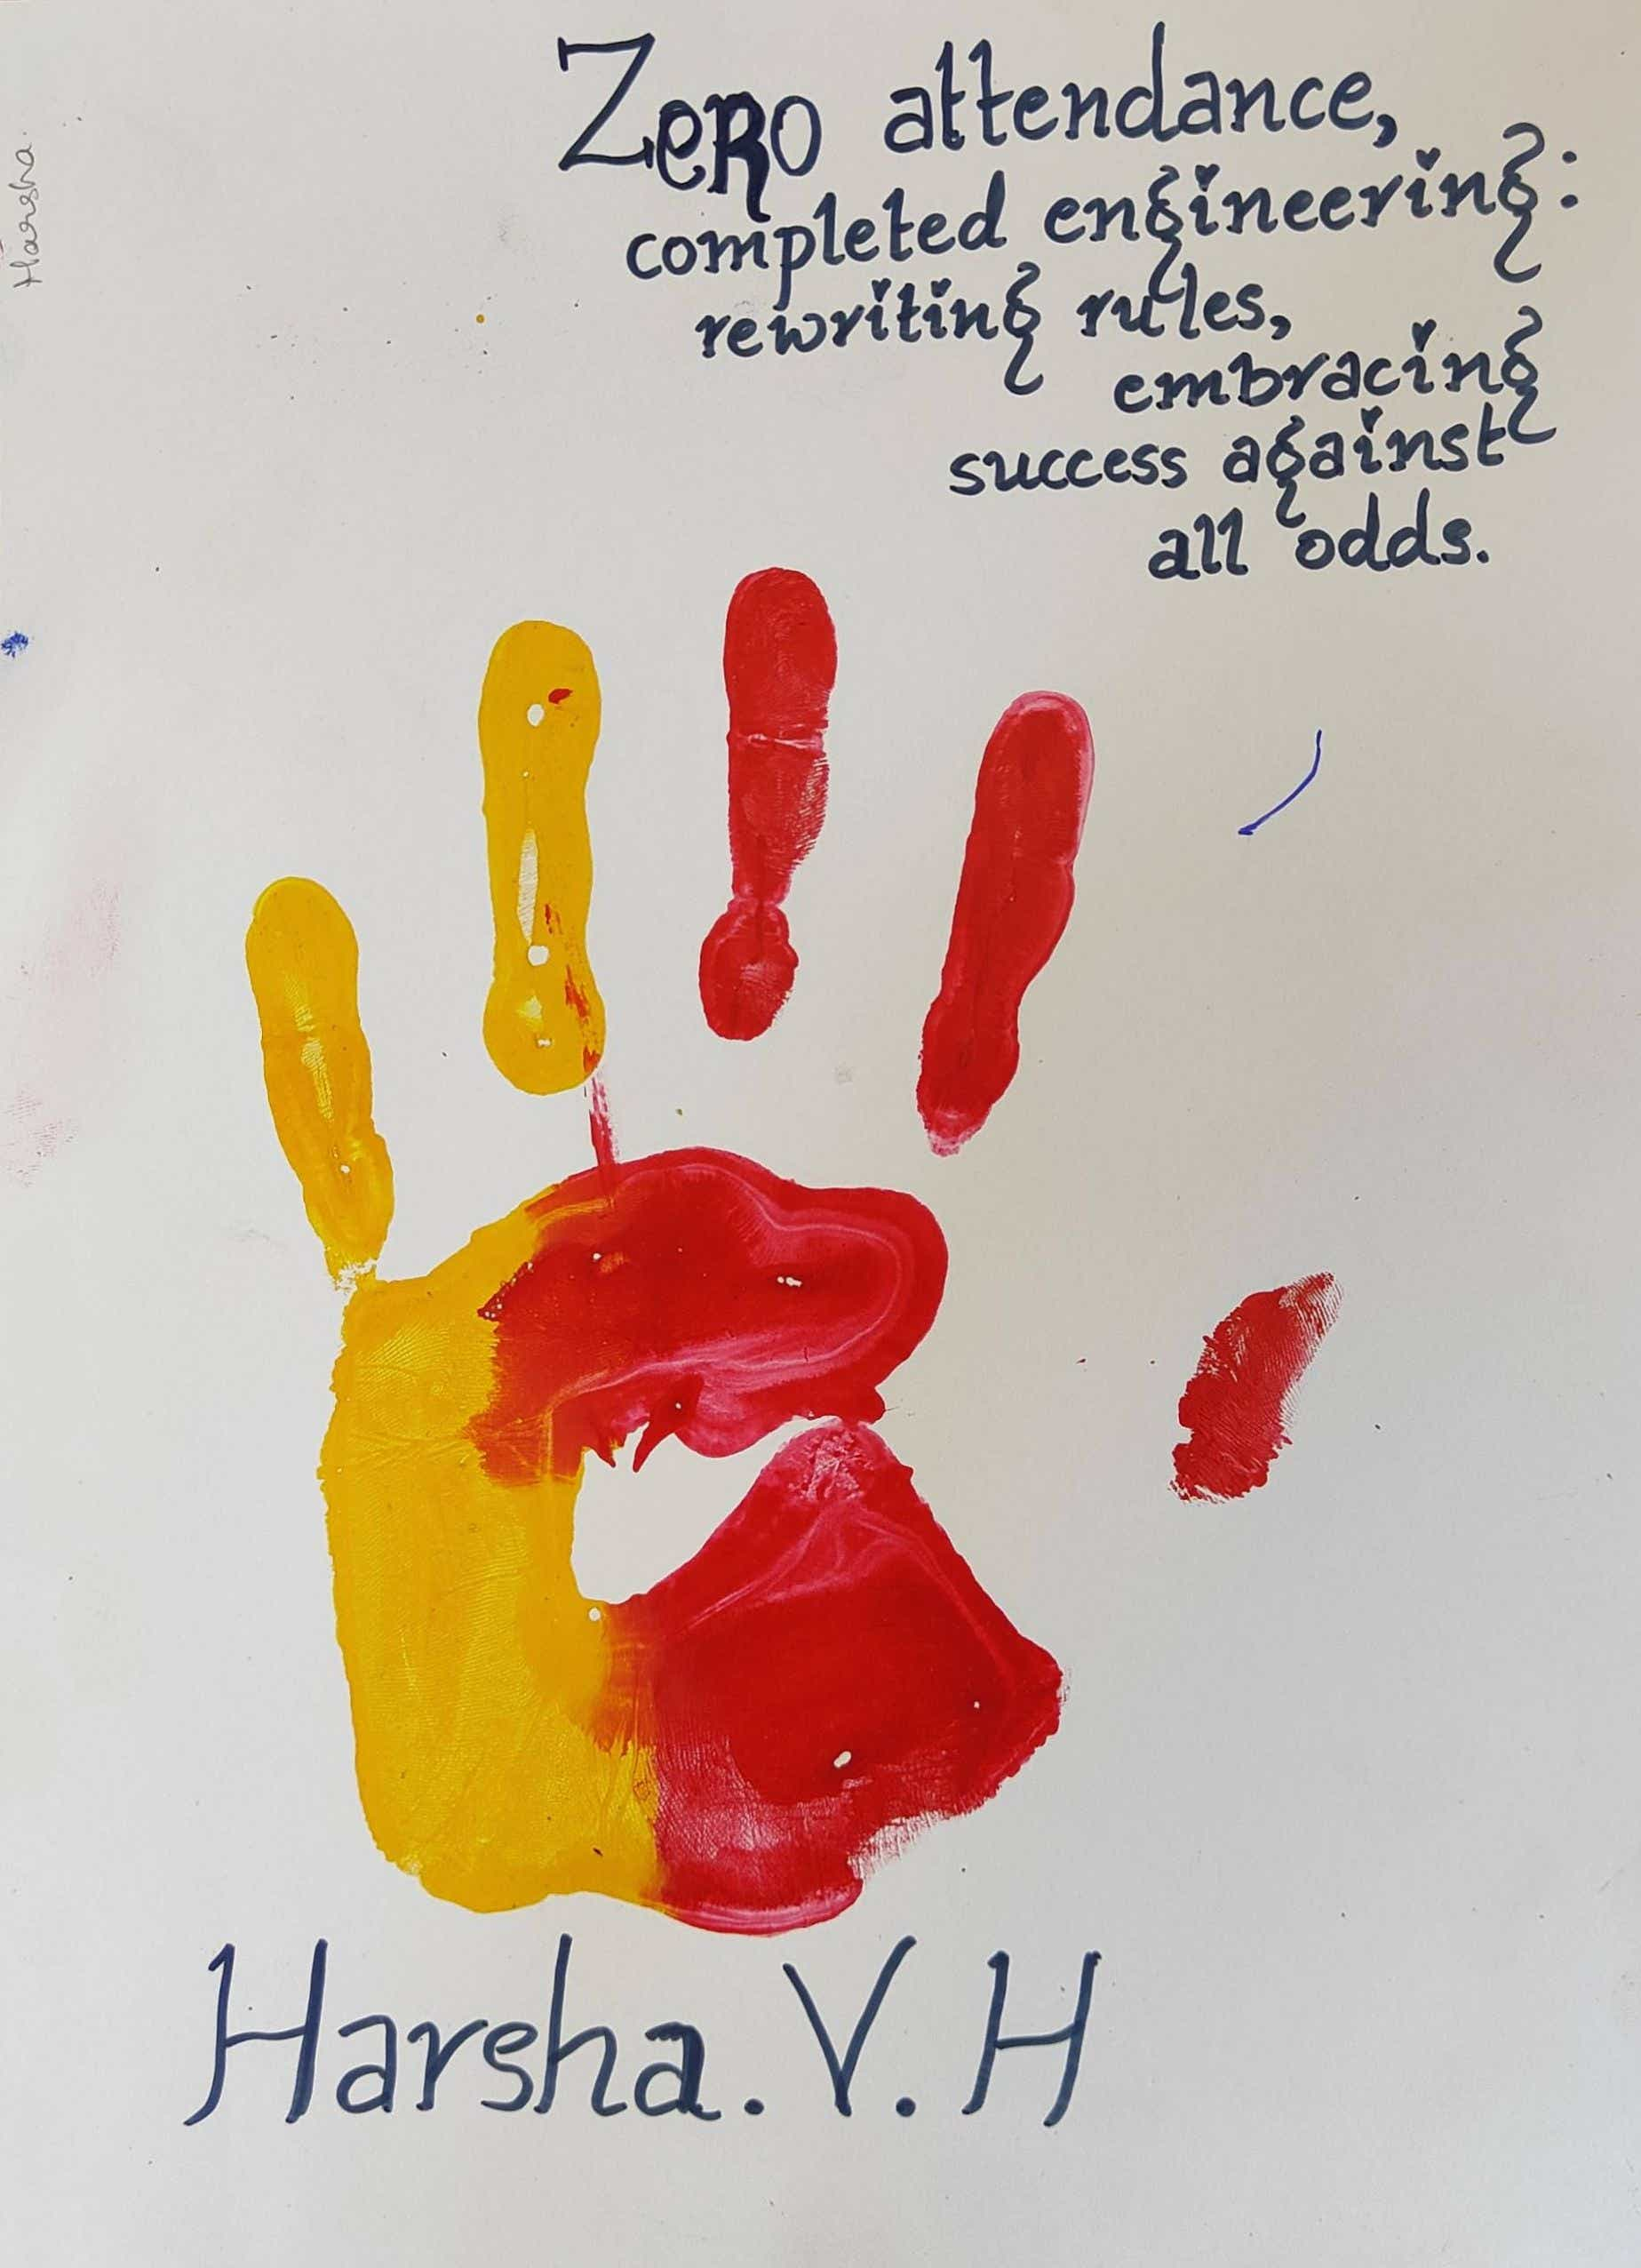 Harsha.
Zero attendance,
completed engineering:
rewriting rules,
embracing
success against
all odds.
Harsha. V. H